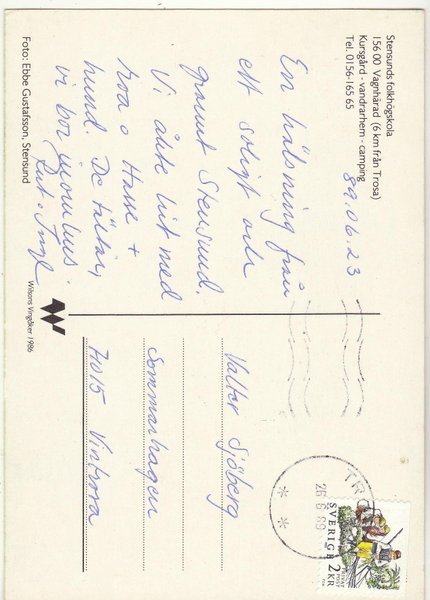 Stensunds folkhögskola
156 00 Vagnhärad (6 km från Trosa)
Kursgård · vandrarhem · camping
Tel. 0156-165 65
89.06.23
En hälsning från
ett soligt och
grannt Stensund.
Vi åkte hit med
Moa o Hasse +
hund. De tältar,
vi bor inomhus.
Foto: Ebbe Gustafsson, Stensund
Wilsons Vingåker 1986
Valter Sjöberg
Sommarhagen
74015 Vintrosa
TRO
26 6 89
SVERIGE 2 KR